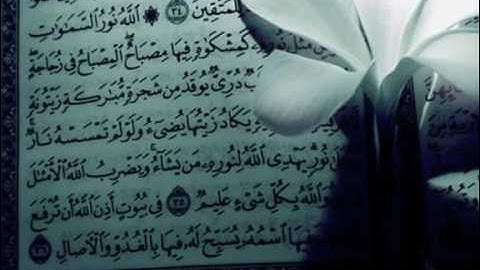 لِّلْمُتَّقِينَ ٣٤ ۞ ٱللَّهُ نُورُ ٱلسَّمَٰوَٰتِ
مَثَلُ نُورِهِۦ كَمِشْكَوٰةٍ فِيهَا مِصْبَاحٌ ۖ ٱلْمِصْبَاحُ فِى زُجَاجَةٍ ۖ
دُرِّىٌّ يُوقَدُ مِن شَجَرَةٍ مُّبَٰرَكَةٍ زَيْتُونَةٍ
يَكَادُ زَيْتُهَا يُضِىٓءُ وَلَوْ لَمْ تَمْسَسْهُ نَارٌ ۚ
نُورٍ ۗ يَهْدِى ٱللَّهُ لِنُورِهِۦ مَن يَشَآءُ ۚ وَيَضْرِبُ ٱللَّهُ ٱلْأَمْثَٰلَ
وَٱللَّهُ بِكُلِّ شَىْءٍ عَلِيمٌ ٣٥ فِى بُيُوتٍ أَذِنَ ٱللَّهُ أَن تُرْفَعَ
فِيهَا ٱسْمُهُۥ يُسَبِّحُ لَهُۥ فِيهَا بِٱلْغُدُوِّ وَٱلْءَاصَالِ ٣٦